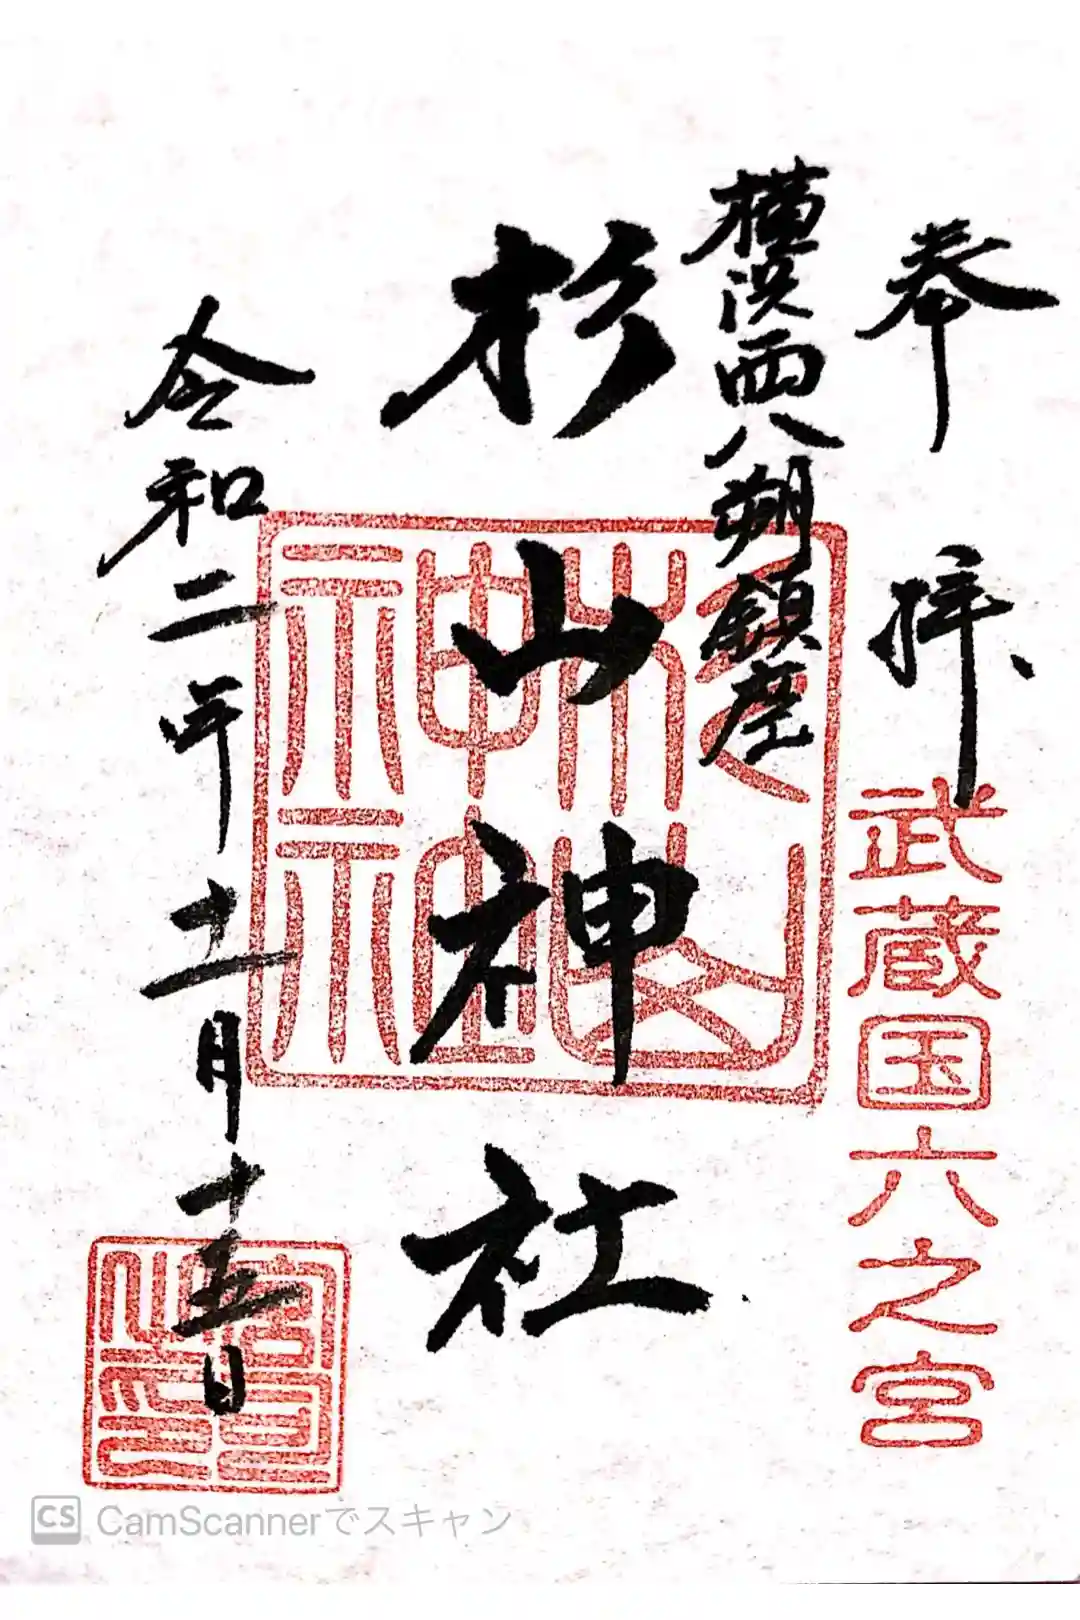 奉拝
武蔵国六之宮
横浜西八朔鎮座
杉山神社
杉山神社
令和二年十一月十五日
CS CamScannerでスキャン